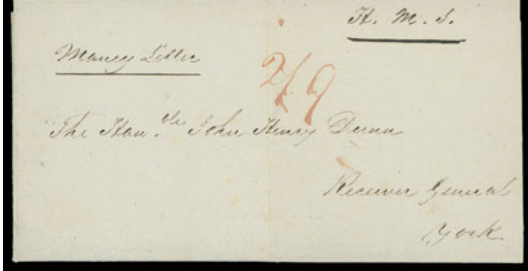 H. M. S.
Money Letter
2/9
The Hon.ble John Henry Dunn
Receiver General
York